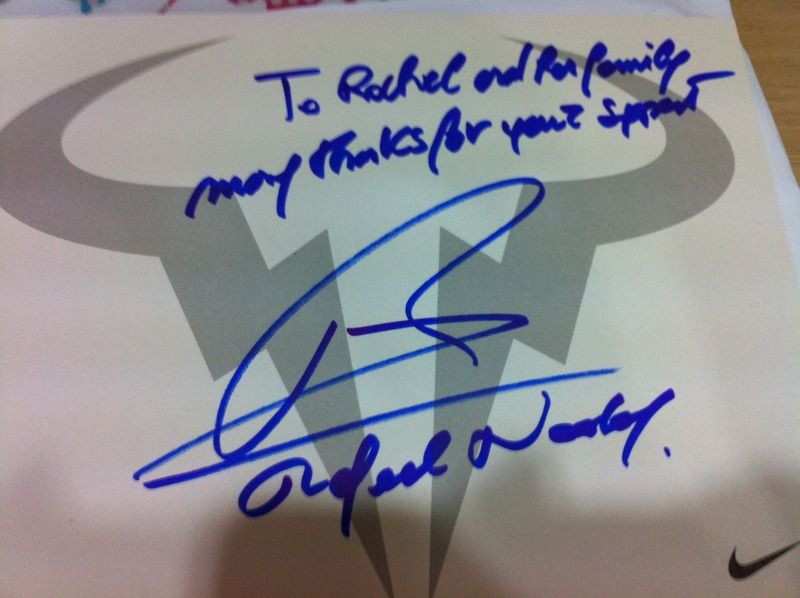 To Rachel and her family
many thanks for your support
Rafael Nadal.